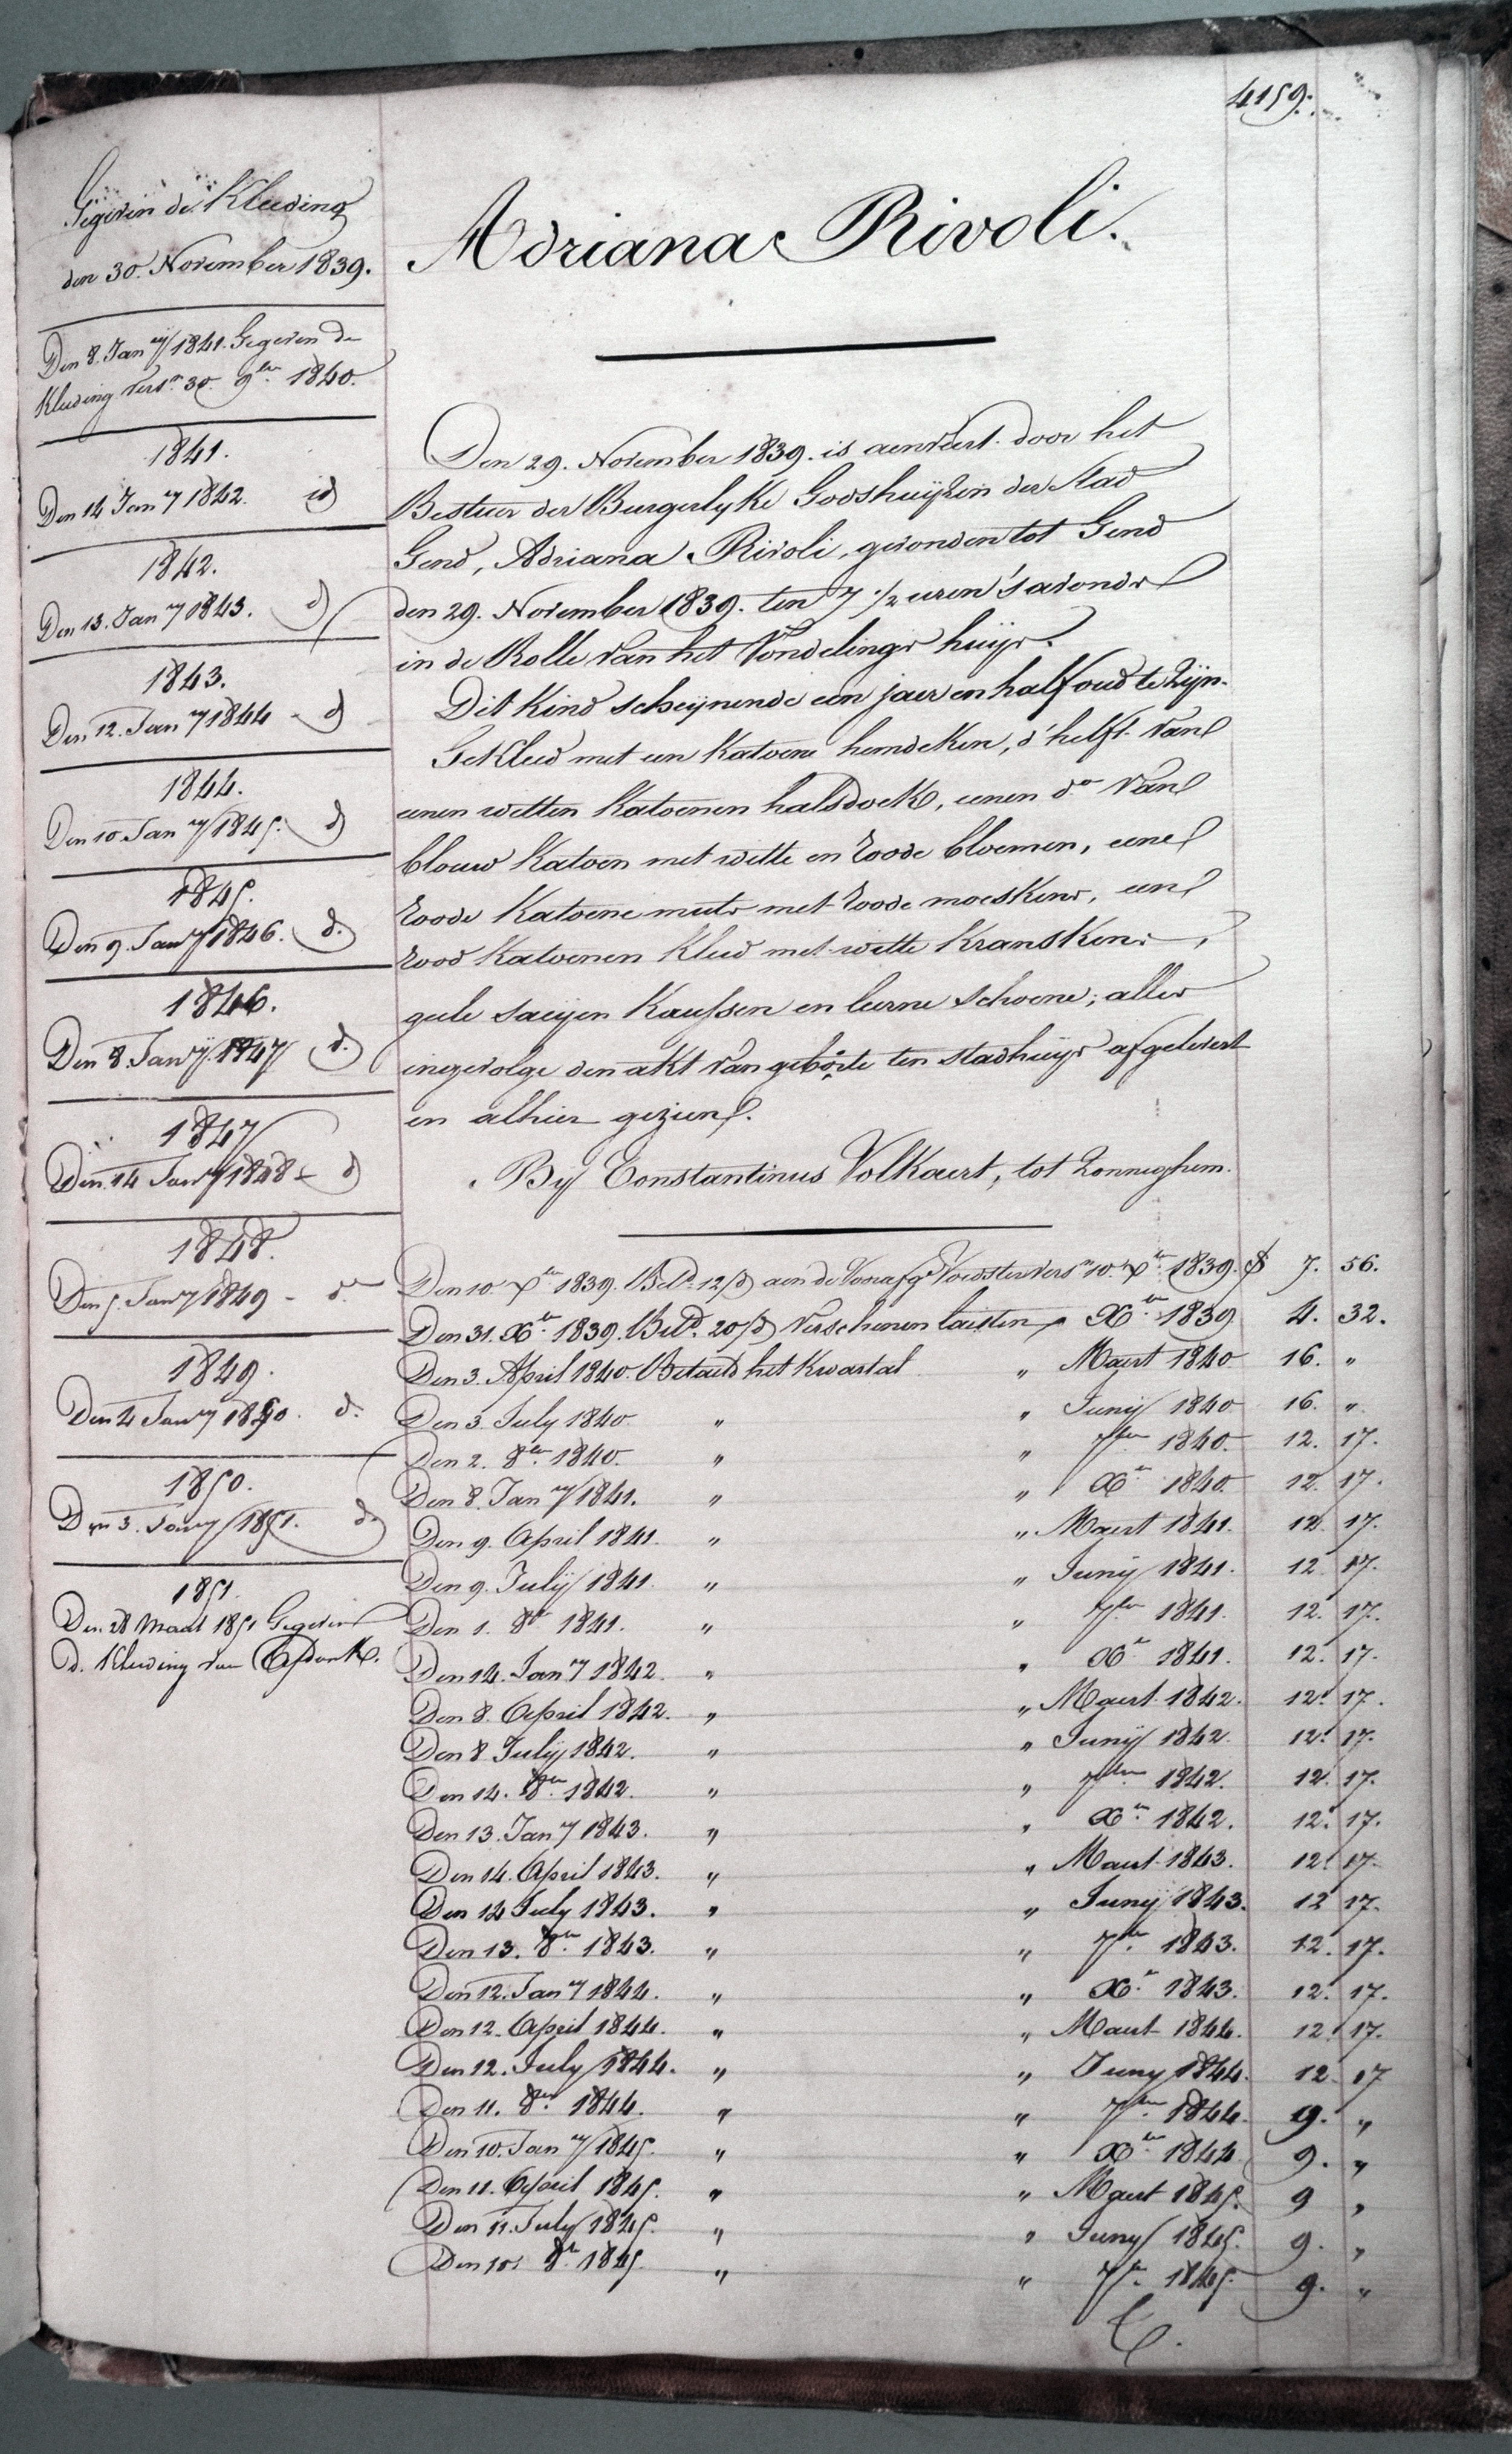 4159.
Gegeven de Kleeding
den 30. November 1839.
Den 8. Jany 1841. Gegeven de
Kleeding versn 30. 9ber 1840.
1841.
Den 14 Jany 1842. id
1842.
Den 13. Jany 1843. d
1843.
Den 12. Jany 1844 - d
1844.
Den 10. Jany 1845. d
1845.
Den 9. Jany 1846. d.
1846.
Den 8. Jany. 1847 d.
1847
Den 14 Jany 1848 - d
1848.
Den 5. Jany 1849 - do
1849.
Den 4 Jany 1850. d.
1850.
Den 3. Jany 1851. do
1851.
Den 28 Maart 1851 Gegeven
d. Kleeding van Afdank.
Adriana Rivoli.
Den 29. November 1839. is aenveert door het
Bestuur der Burgerlyke Godshuijzen der Stad
Gend, Adriana Rivoli, gevonden tot Gend
den 29. November 1839. ten 7 1/2 uren 's avonds
in de Rolle van het Vondelings huijs.
Dit Kind scheijnende een jaer en half oud te Zijn.
Gekleed met een Katoene hemdeken, d'helft van
eenen witten Katoenen halsdoek, eenen do van
blouw Katoen met witte en roode bloemen, eene
roode Katoene muts met roode moeskens, een
rood Katoenen Kleed met witte Kranskens,
geele saeijen Kaussen en leerne schoene; alles
ingevolge den akt van geborte ten stadhuijs afgelevert
en alhier gezien.
Bij Constantinus Volkaert, tot Zonneghem.
Den 10. Xber 1839. Betd. 12/d aen de Voedster versn 10. Xber 1839. 7. 56.
Den 31. Xber 1839. Betd. 20/d verschenen laesten Xber 1839 4. 32.
Den 3. April 1840. Betaeld het Kwartal " Maert 1840 16. "
Den 3. July 1840 " " Junij 1840 16. "
Den 2. 8ber 1840. " " 7ber 1840. 12. 17.
Den 8. Jany 1841. " " Xber 1840 12. 17.
Den 9. April 1841. " " Maert 1841. 12 17.
Den 9. Julij 1841. " " Junij 1841. 12 17.
Den 1. 8ber 1841. " " 7ber 1841. 12. 17.
Den 14. Jany 1842. " " Xber 1841. 12. 17.
Den 8. April 1842. " " Maert 1842. 12. 17.
Den 8 Julij 1842. " " Junij 1842. 12. 17.
Den 14. 8ber 1842. " " 7ber 1842. 12. 17.
Den 13. Jany 1843. " " Xber 1842. 12. 17.
Den 14. April 1843. " " Maert 1843. 12. 17.
Den 14 July 1843. " " Junij 1843. 12 17.
Den 13. 8ber 1843. " " 7ber 1843. 12. 17.
Den 12. Jany 1844. " " Xber 1843. 12. 17.
Den 12. April 1844. " " Maert 1844. 12. 17.
Den 12. July 1844. " " Juny 1844. 12. 17
Den 11. 8ber 1844. " " 7ber 1844. 9. "
Den 10. Jany 1845. " " Xber 1844 9. "
Den 11. April 1845. " " Maert 1845. 9 "
Den 11. July 1845. " " Juny 1845. 9. "
Den 10. 8ber 1845 " " 7ber 1845. 9. "